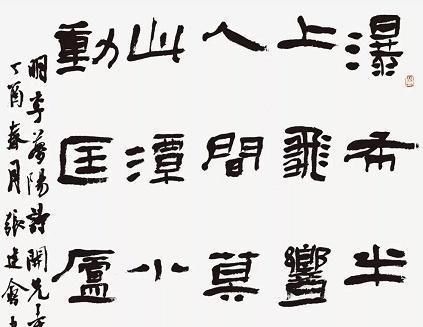 瀑布半
上飛響
人間莫
此潭小
動匡廬
明李夢陽詩開先寺
丁酉春月張建會